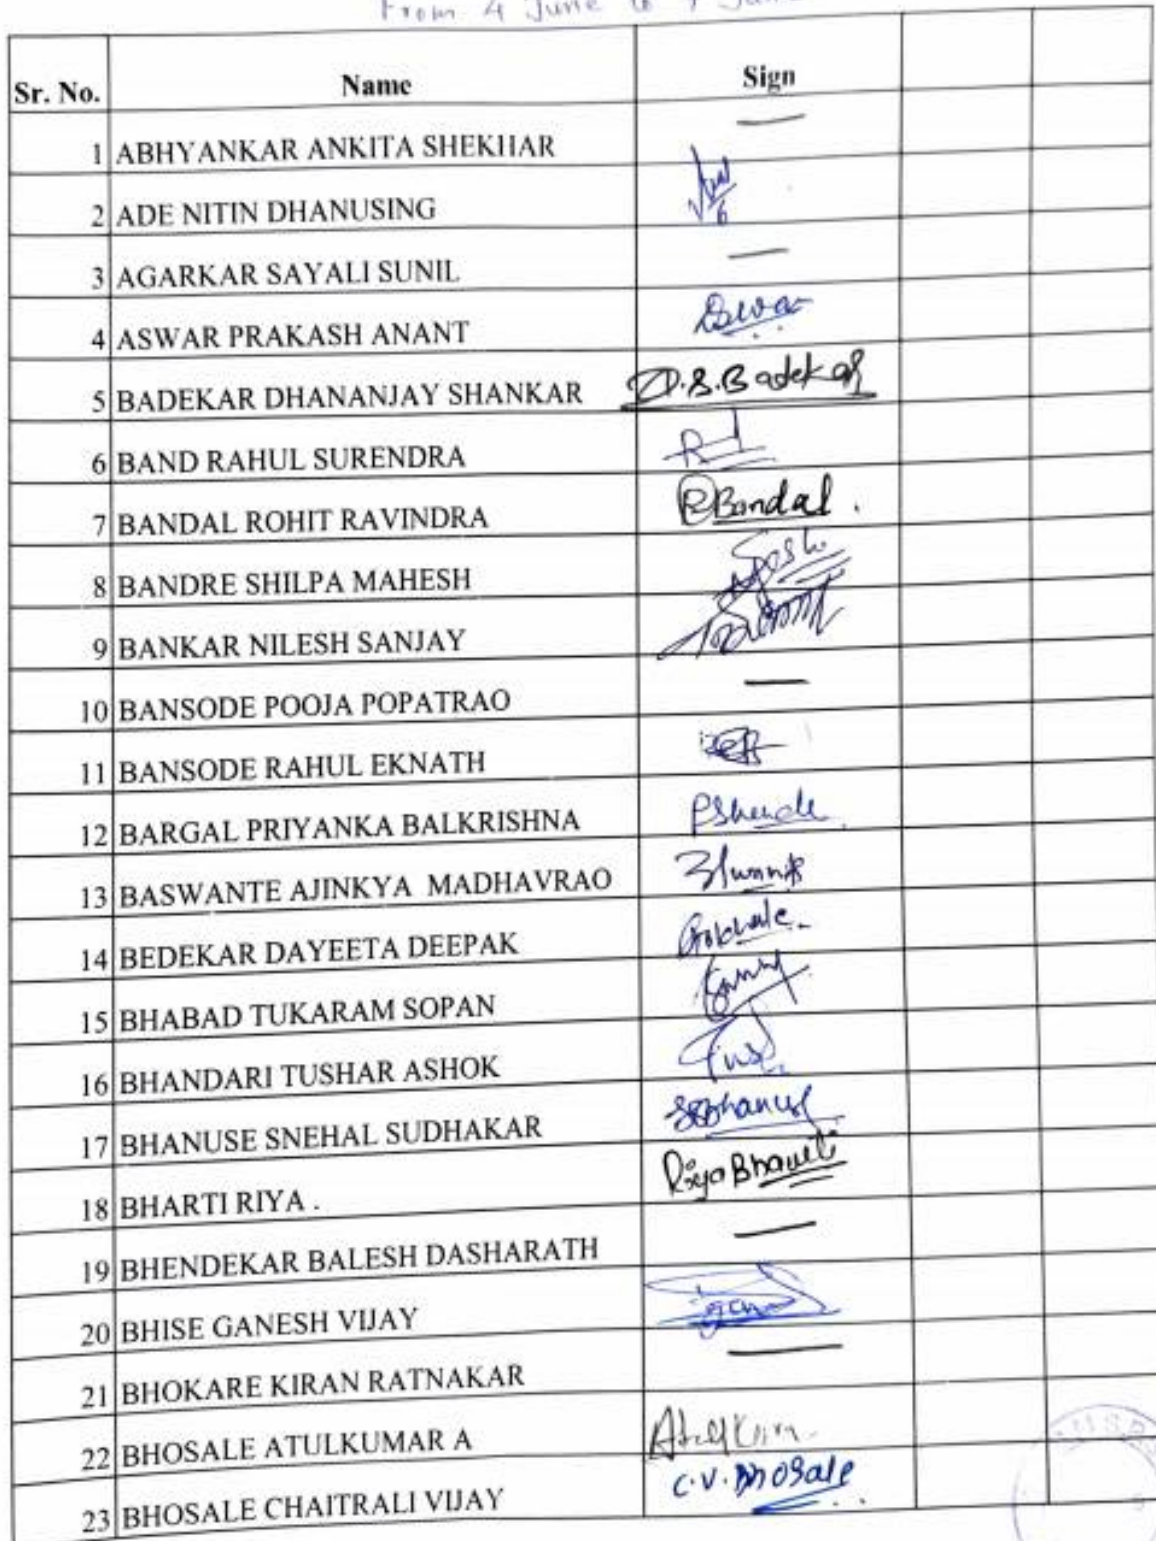 From 4 June to
Sr. No. Name Sign
1 ABHYANKAR ANKITA SHEKHAR —
2 ADE NITIN DHANUSING
3 AGARKAR SAYALI SUNIL —
4 ASWAR PRAKASH ANANT
5 BADEKAR DHANANJAY SHANKAR D.S.Badekar
6 BAND RAHUL SURENDRA
7 BANDAL ROHIT RAVINDRA RBandal.
8 BANDRE SHILPA MAHESH
9 BANKAR NILESH SANJAY
10 BANSODE POOJA POPATRAO —
11 BANSODE RAHUL EKNATH
12 BARGAL PRIYANKA BALKRISHNA
13 BASWANTE AJINKYA MADHAVRAO
14 BEDEKAR DAYEETA DEEPAK
15 BHABAD TUKARAM SOPAN
16 BHANDARI TUSHAR ASHOK
17 BHANUSE SNEHAL SUDHAKAR
18 BHARTI RIYA .
19 BHENDEKAR BALESH DASHARATH —
20 BHISE GANESH VIJAY
21 BHOKARE KIRAN RATNAKAR —
22 BHOSALE ATULKUMAR A
23 BHOSALE CHAITRALI VIJAY C.V.Bhosale